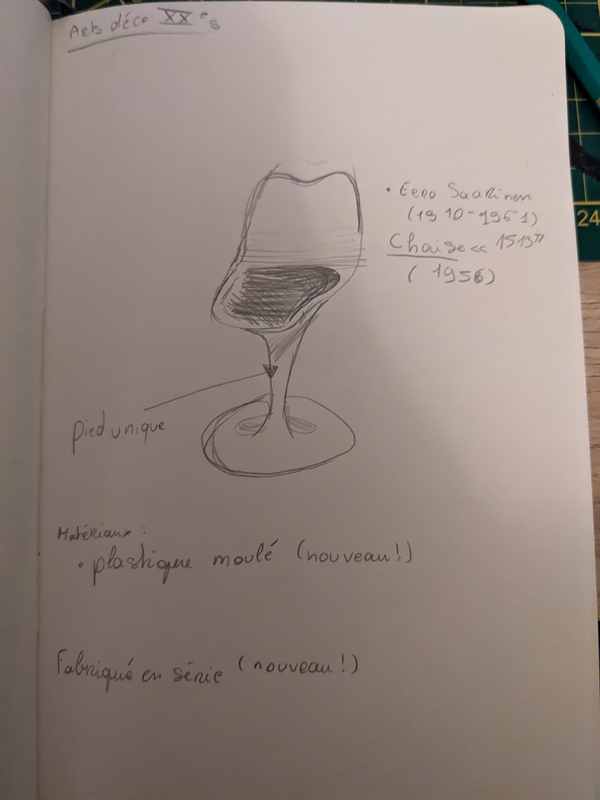 Arts déco XXe s
• Eero Saarinen
(1910-1961)
Chaise « 151S"
(1956)
pied unique
Matériaux :
• plastique moulé (nouveau!)
Fabriqué en série (nouveau!)
24